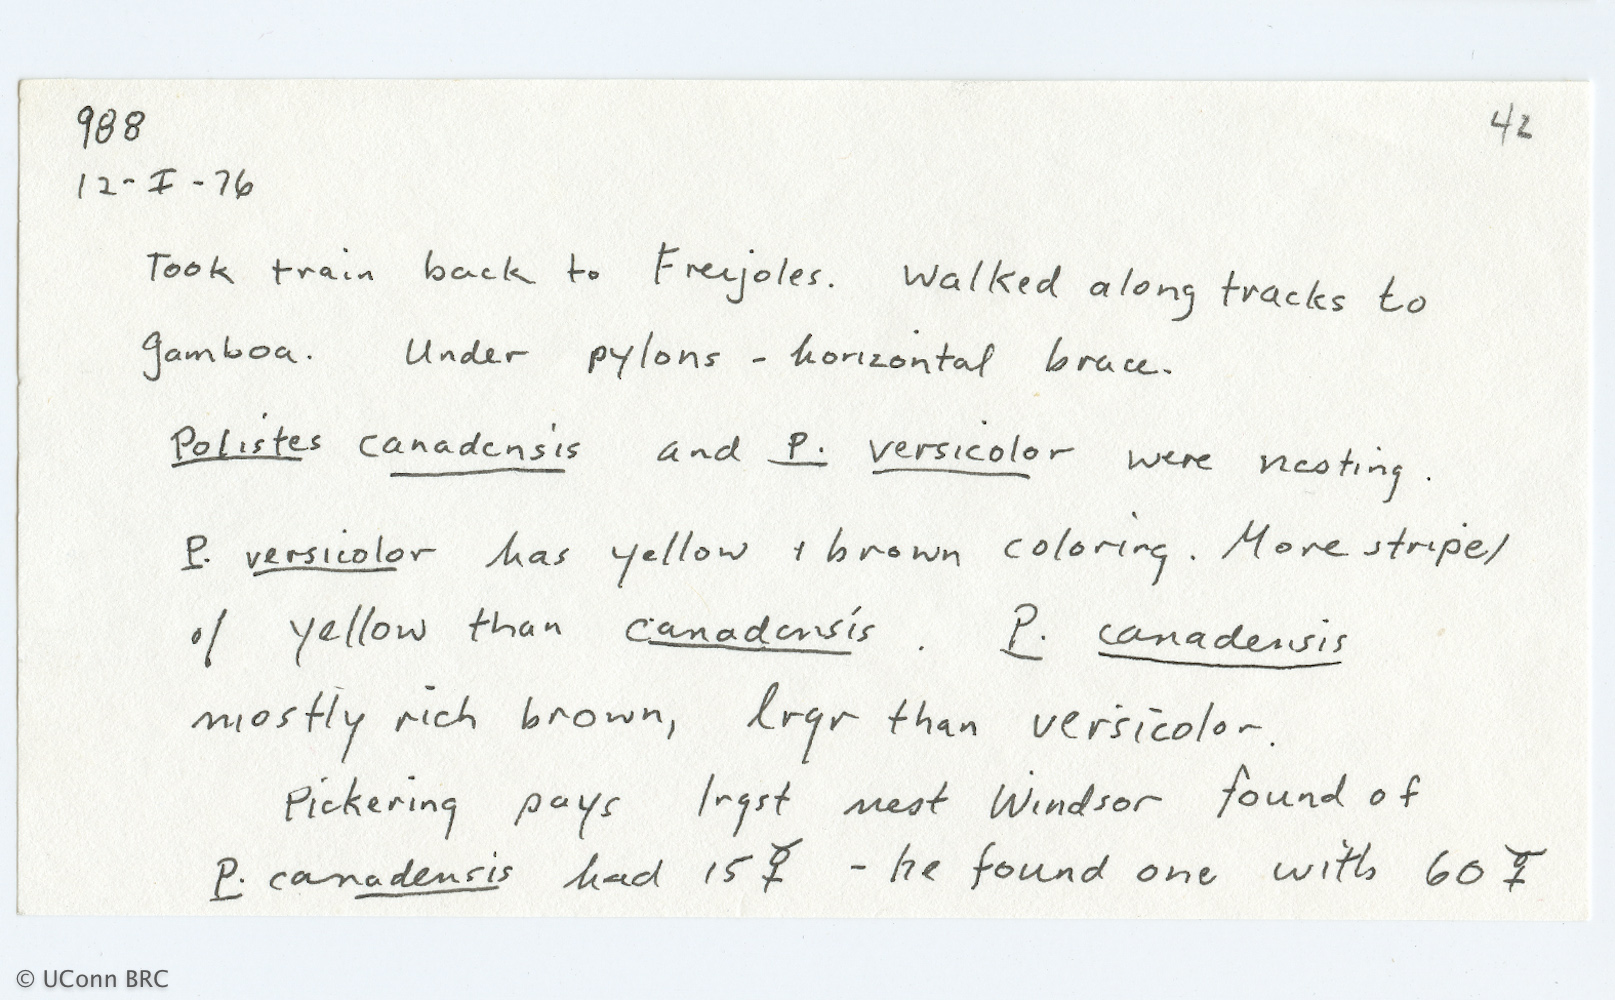 988
42
12-I-76
Took train back to Freijoles. Walked along tracks to
Gamboa. Under pylons - horizontal brace.
Polistes canadensis and P. versicolor were nesting.
P. versicolor has yellow + brown coloring. More stripes
of yellow than canadensis. P. canadensis
mostly rich brown, lrgr than versicolor.
Pickering pays lrgst nest Windsor found of
P. canadensis had 15 ☿ - he found one with 60 ☿
© UConn BRC